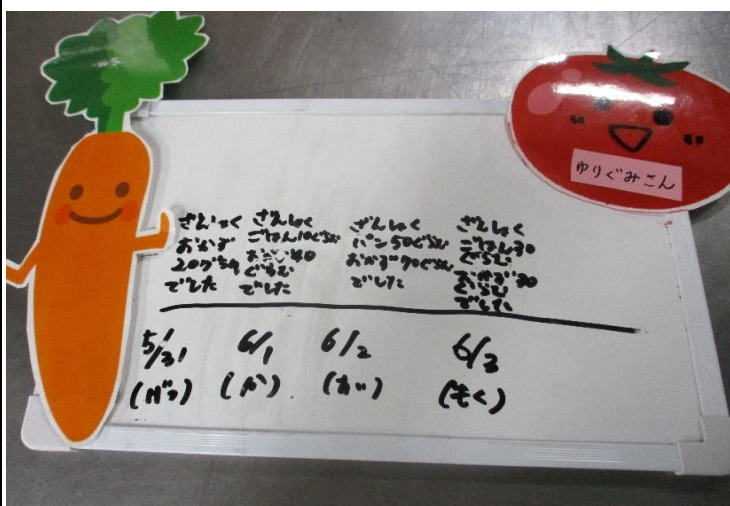 ゆりぐみさん
ざんしょく
おかず
20グラム
でした
ざんしょく
ごはん10ぐらむ
おかず40
ぐらむ
でした
ざんしょく
パン50ぐらむ
おかず70ぐらむ
でした
ざんしょく
ごはん30
ぐらむ
おかず30
ぐらむ
でした
5/31
6/1
6/2
6/3
(げつ)
(か)
(もく)